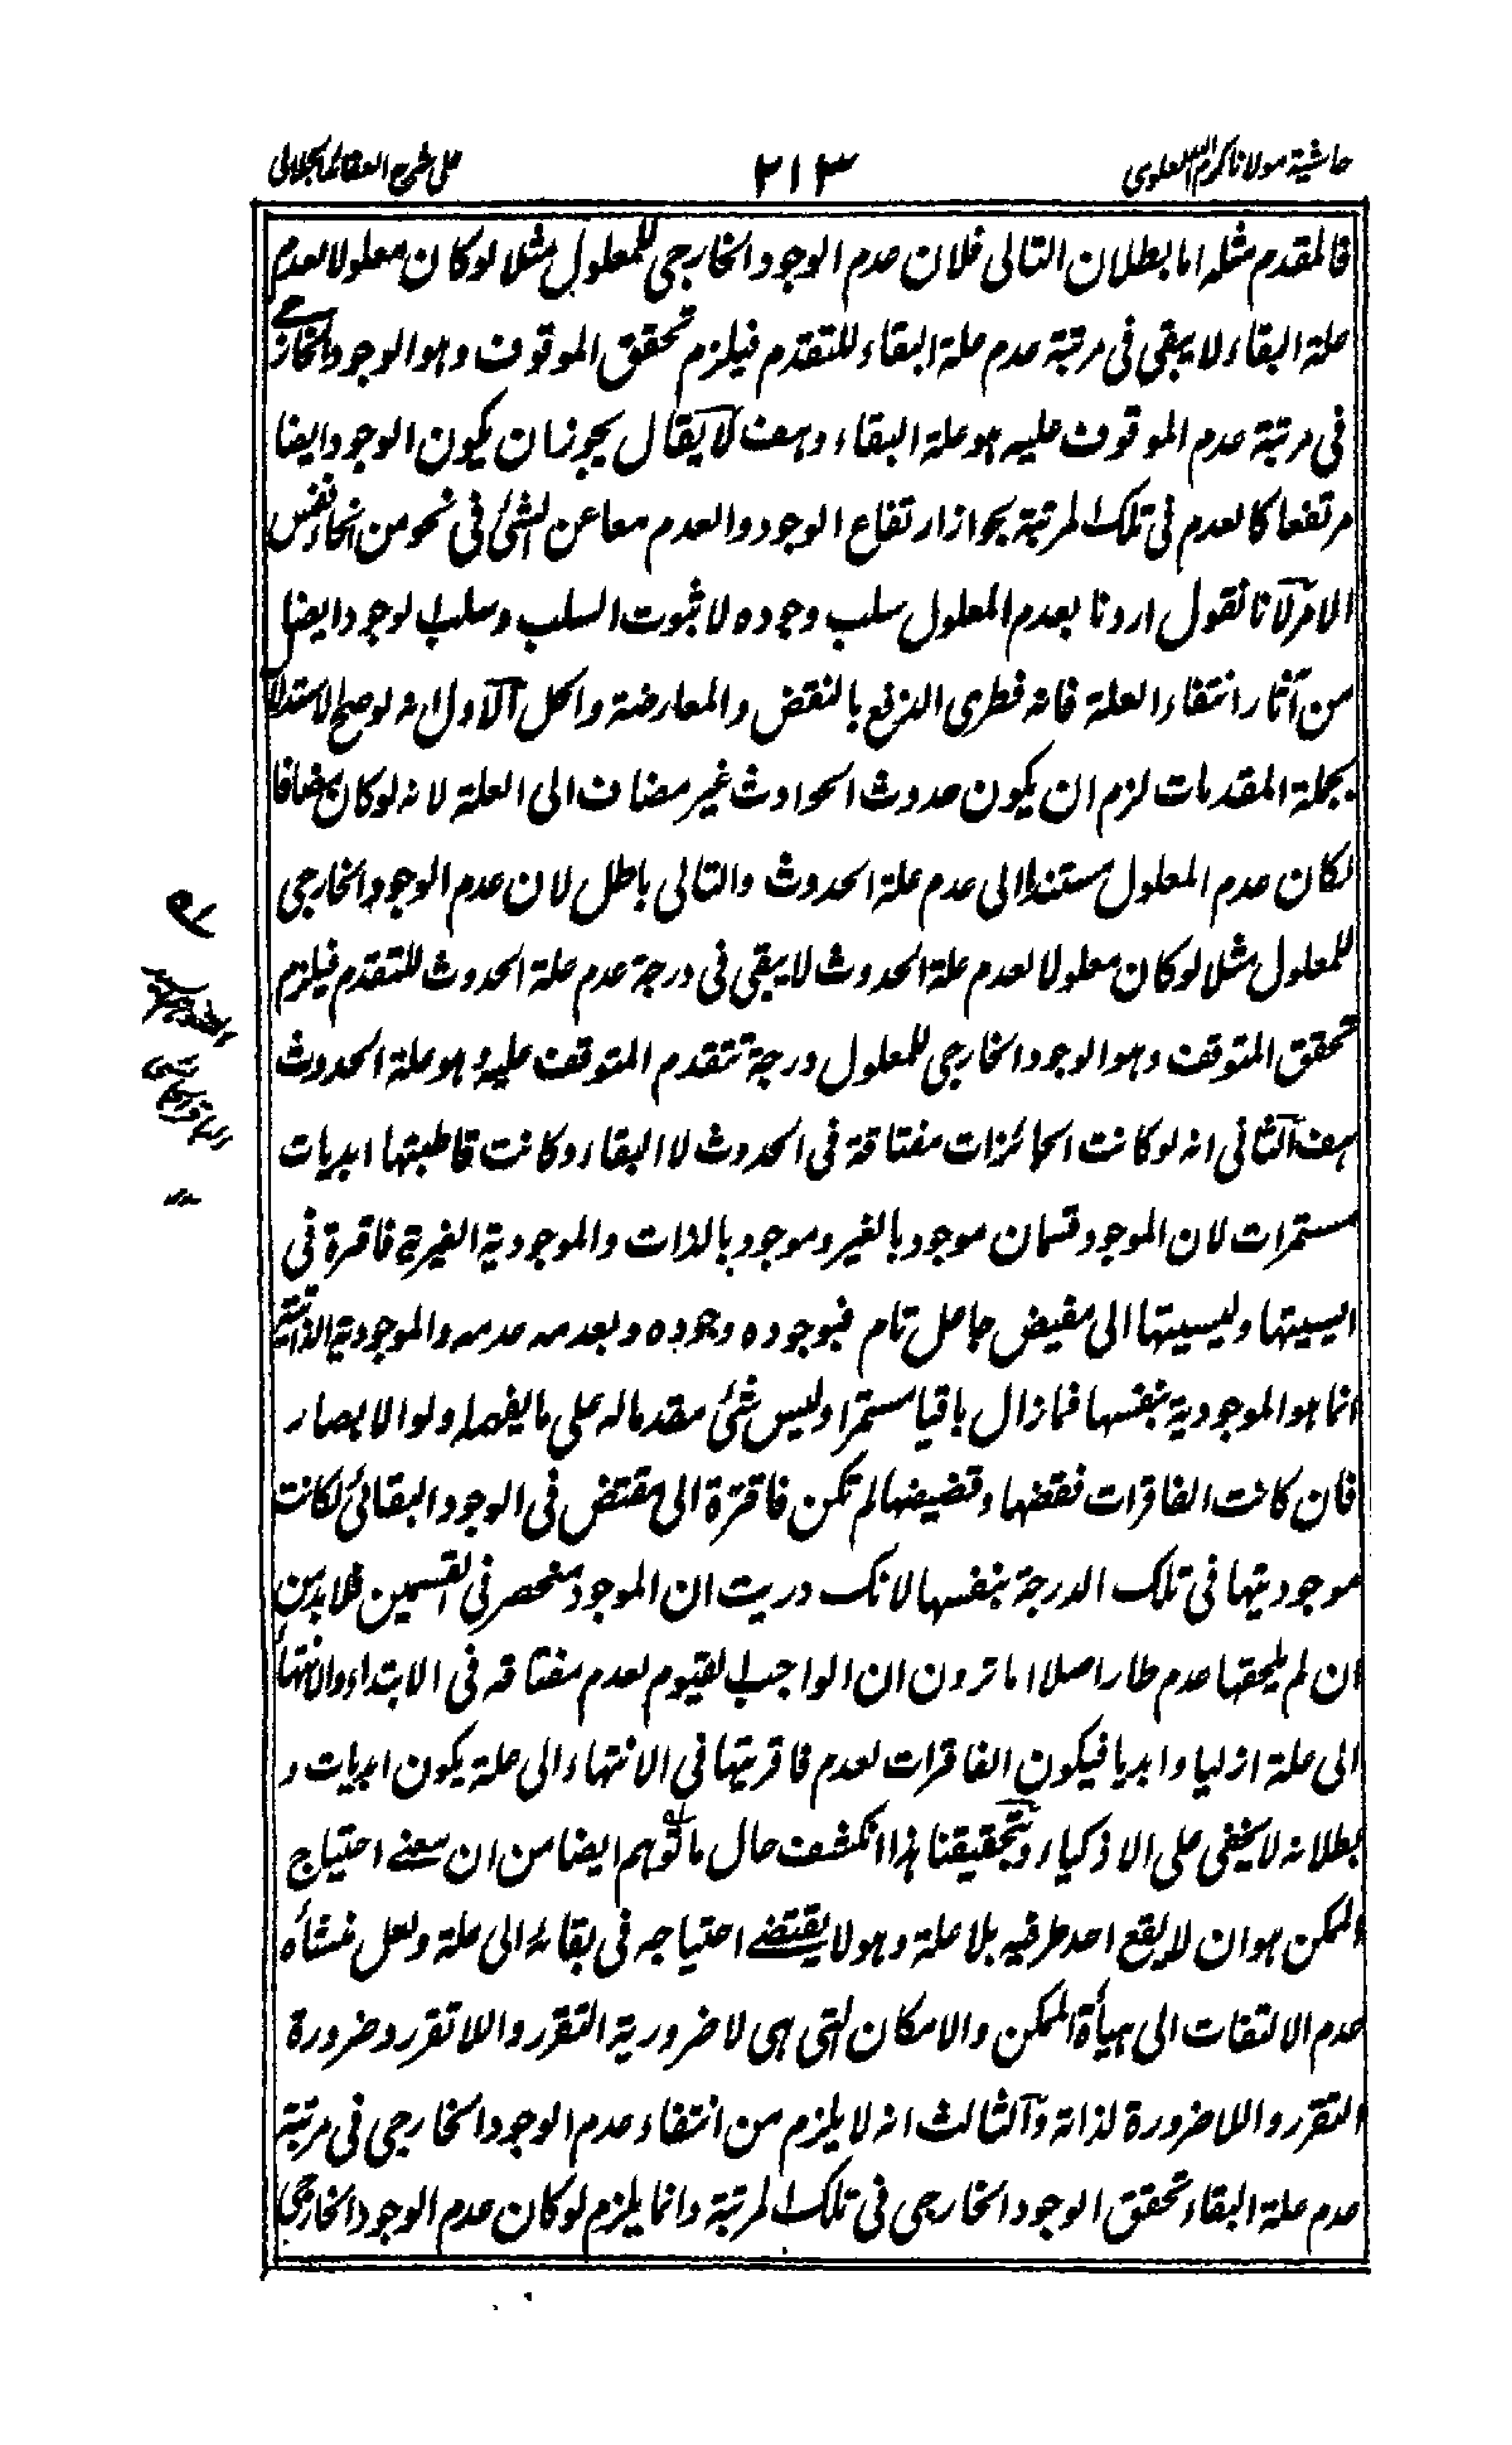 حاشية مولانا كرم الله الدهلوى
٢١٣
على شرح العقائد الجلالى
فالمقدم مثله اما بطلان التالى فلان عدم الوجود الخارجى للمعلول مثلا لو كان معلولا لعدم
علة البقاء لا يبقى فى مرتبة عدم علة البقاء للتقدم فيلزم تحقق الموقوف وهو الوجود الخارجى
فى مرتبة عدم الموقوف عليه هو علة البقاء وهف لا يقال يجوز ان يكون الوجود ايضا
مرتفعا كالعدم فى تلك المرتبة بجواز ارتفاع الوجود والعدم معا عن الشئ فى نحو من انحاء نفس
الامر لانا نقول اردنا بعدم المعلول سلب وجوده لا ثبوت السلب وسلب الوجود ايضا
من آثار انتفاء العلة فانه فطرى الدفع بالنقض والمعارضة والحل الاول انه لو صح الاستدلال
بجملة المقدمات لزم ان يكون حدوث الحوادث غير مضاف الى العلة لانه لو كان مضافا
لكان عدم المعلول مستندا الى عدم علة الحدوث والتالى باطل لان عدم الوجود الخارجى
للمعلول مثلا لو كان معلولا لعدم علة الحدوث لا يبقى فى درجة عدم علة الحدوث للتقدم فيلزم
تحقق المتوقف وهو الوجود الخارجى للمعلول درجة تتقدم المتوقف عليه وهو علة الحدوث
هف الثانى انه لو كانت الجائزات مفتاقة فى الحدوث لا البقاء وكانت قاطبتها ابديات
مستمرات لان الموجود قسمان موجود بالغير وموجود بالذات والموجودية الغيرية فاقرة فى
ايسيتها وليسيتها الى مفيض جاعل تام فبوجوده وجوده وبعدمه عدمه والموجودية الذاتية
انما هو الموجودية بنفسها فمازال باقيا مستمرا وليس شئ مقدما له على ما يفهمه اولو الابصار
فان كانت الفاقرات نقضها وقضيضها لم تكن فاقرة الى مقتض فى الوجود البقائى لكانت
موجوديتها فى تلك الدرجة بنفسها لانك دريت ان الموجود منحصر فى القسمين فلا بد من
ان لم يلحقها عدم طار اصلا اما ترون ان الواجب القيوم لعدم مفتاقه فى الابتداء والانتهاء
الى علة ازليا وابديا فيكون الفاقرات لعدم فاقريتها فى الانتهاء الى علة يكون ابديات و
بطلانه لا يخفى على الاذكياء وبتحقيقنا هذا انكشف حال ما توهم ايضا من ان معنى احتياج
الممكن هو ان لا يقع احد طرفيه بلا علة وهو لا يقتضى احتياجه فى بقائه الى علة ولعل منشأه
عدم الالتفات الى هيأة الممكن والامكان التى هى لا ضرورية التقرر واللاتقرر وضرورة
التقرر واللاضرورة لذاته والثالث انه لا يلزم من انتفاء عدم الوجود الخارجى فى مرتبة
عدم علة البقاء تحقق الوجود الخارجى فى تلك المرتبة وانما يلزم لو كان عدم الوجود الخارجى